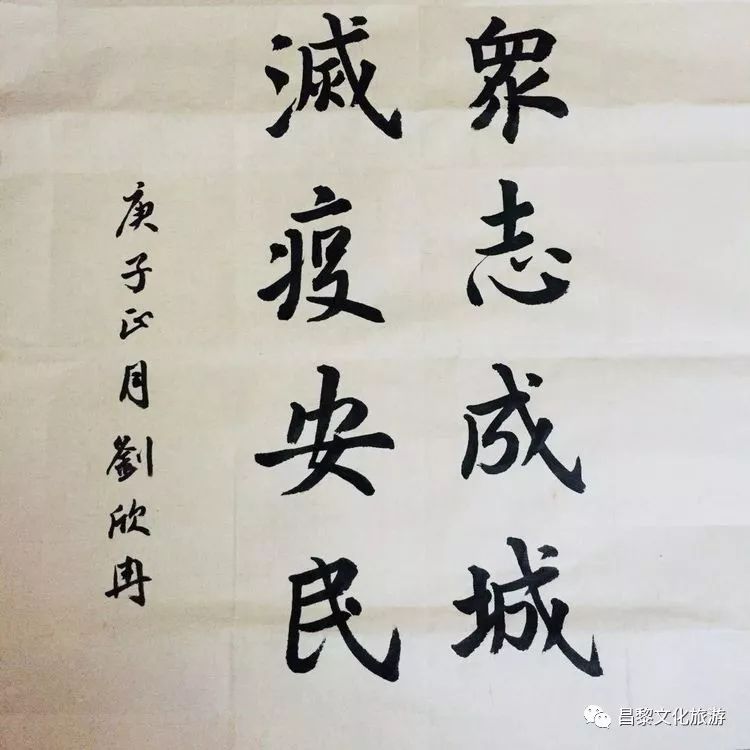 眾志成城
滅疫安民
庚子正月劉欣冉
昌黎文化旅游